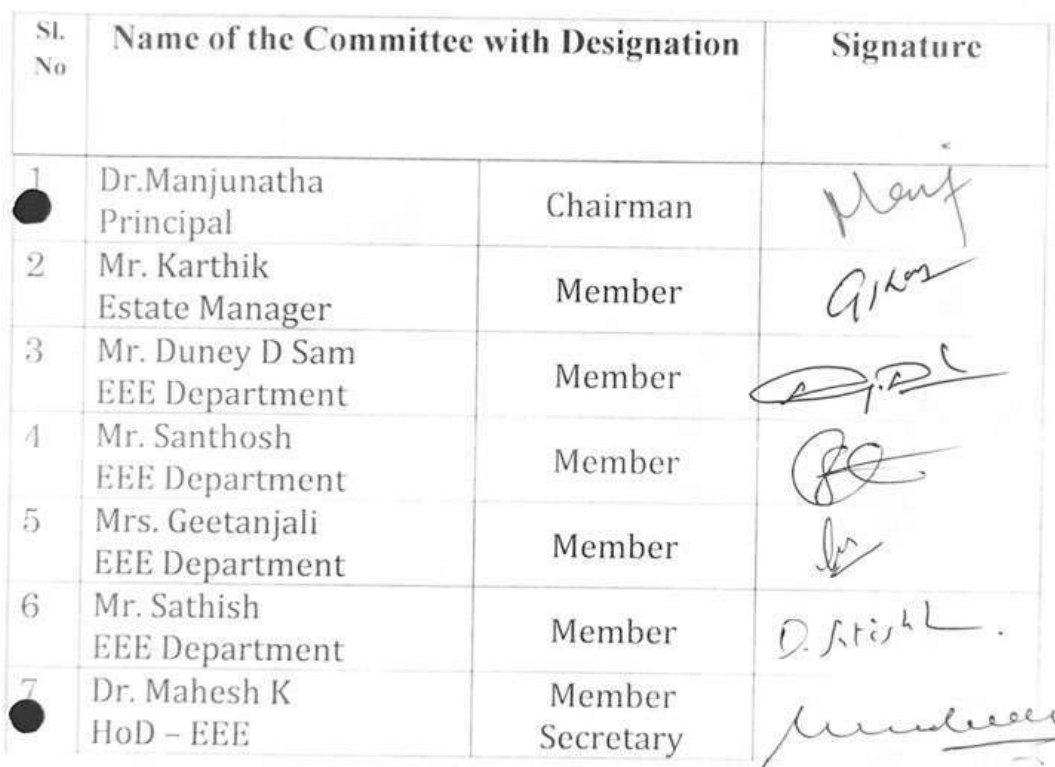 Sl. No
Name of the Committee with Designation
Signature
1
Dr.Manjunatha
Principal
Chairman
2
Mr. Karthik
Estate Manager
Member
3
Mr. Duney D Sam
EEE Department
Member
4
Mr. Santhosh
EEE Department
Member
5
Mrs. Geetanjali
EEE Department
Member
6
Mr. Sathish
EEE Department
Member
7
Dr. Mahesh K
HoD – EEE
Member
Secretary